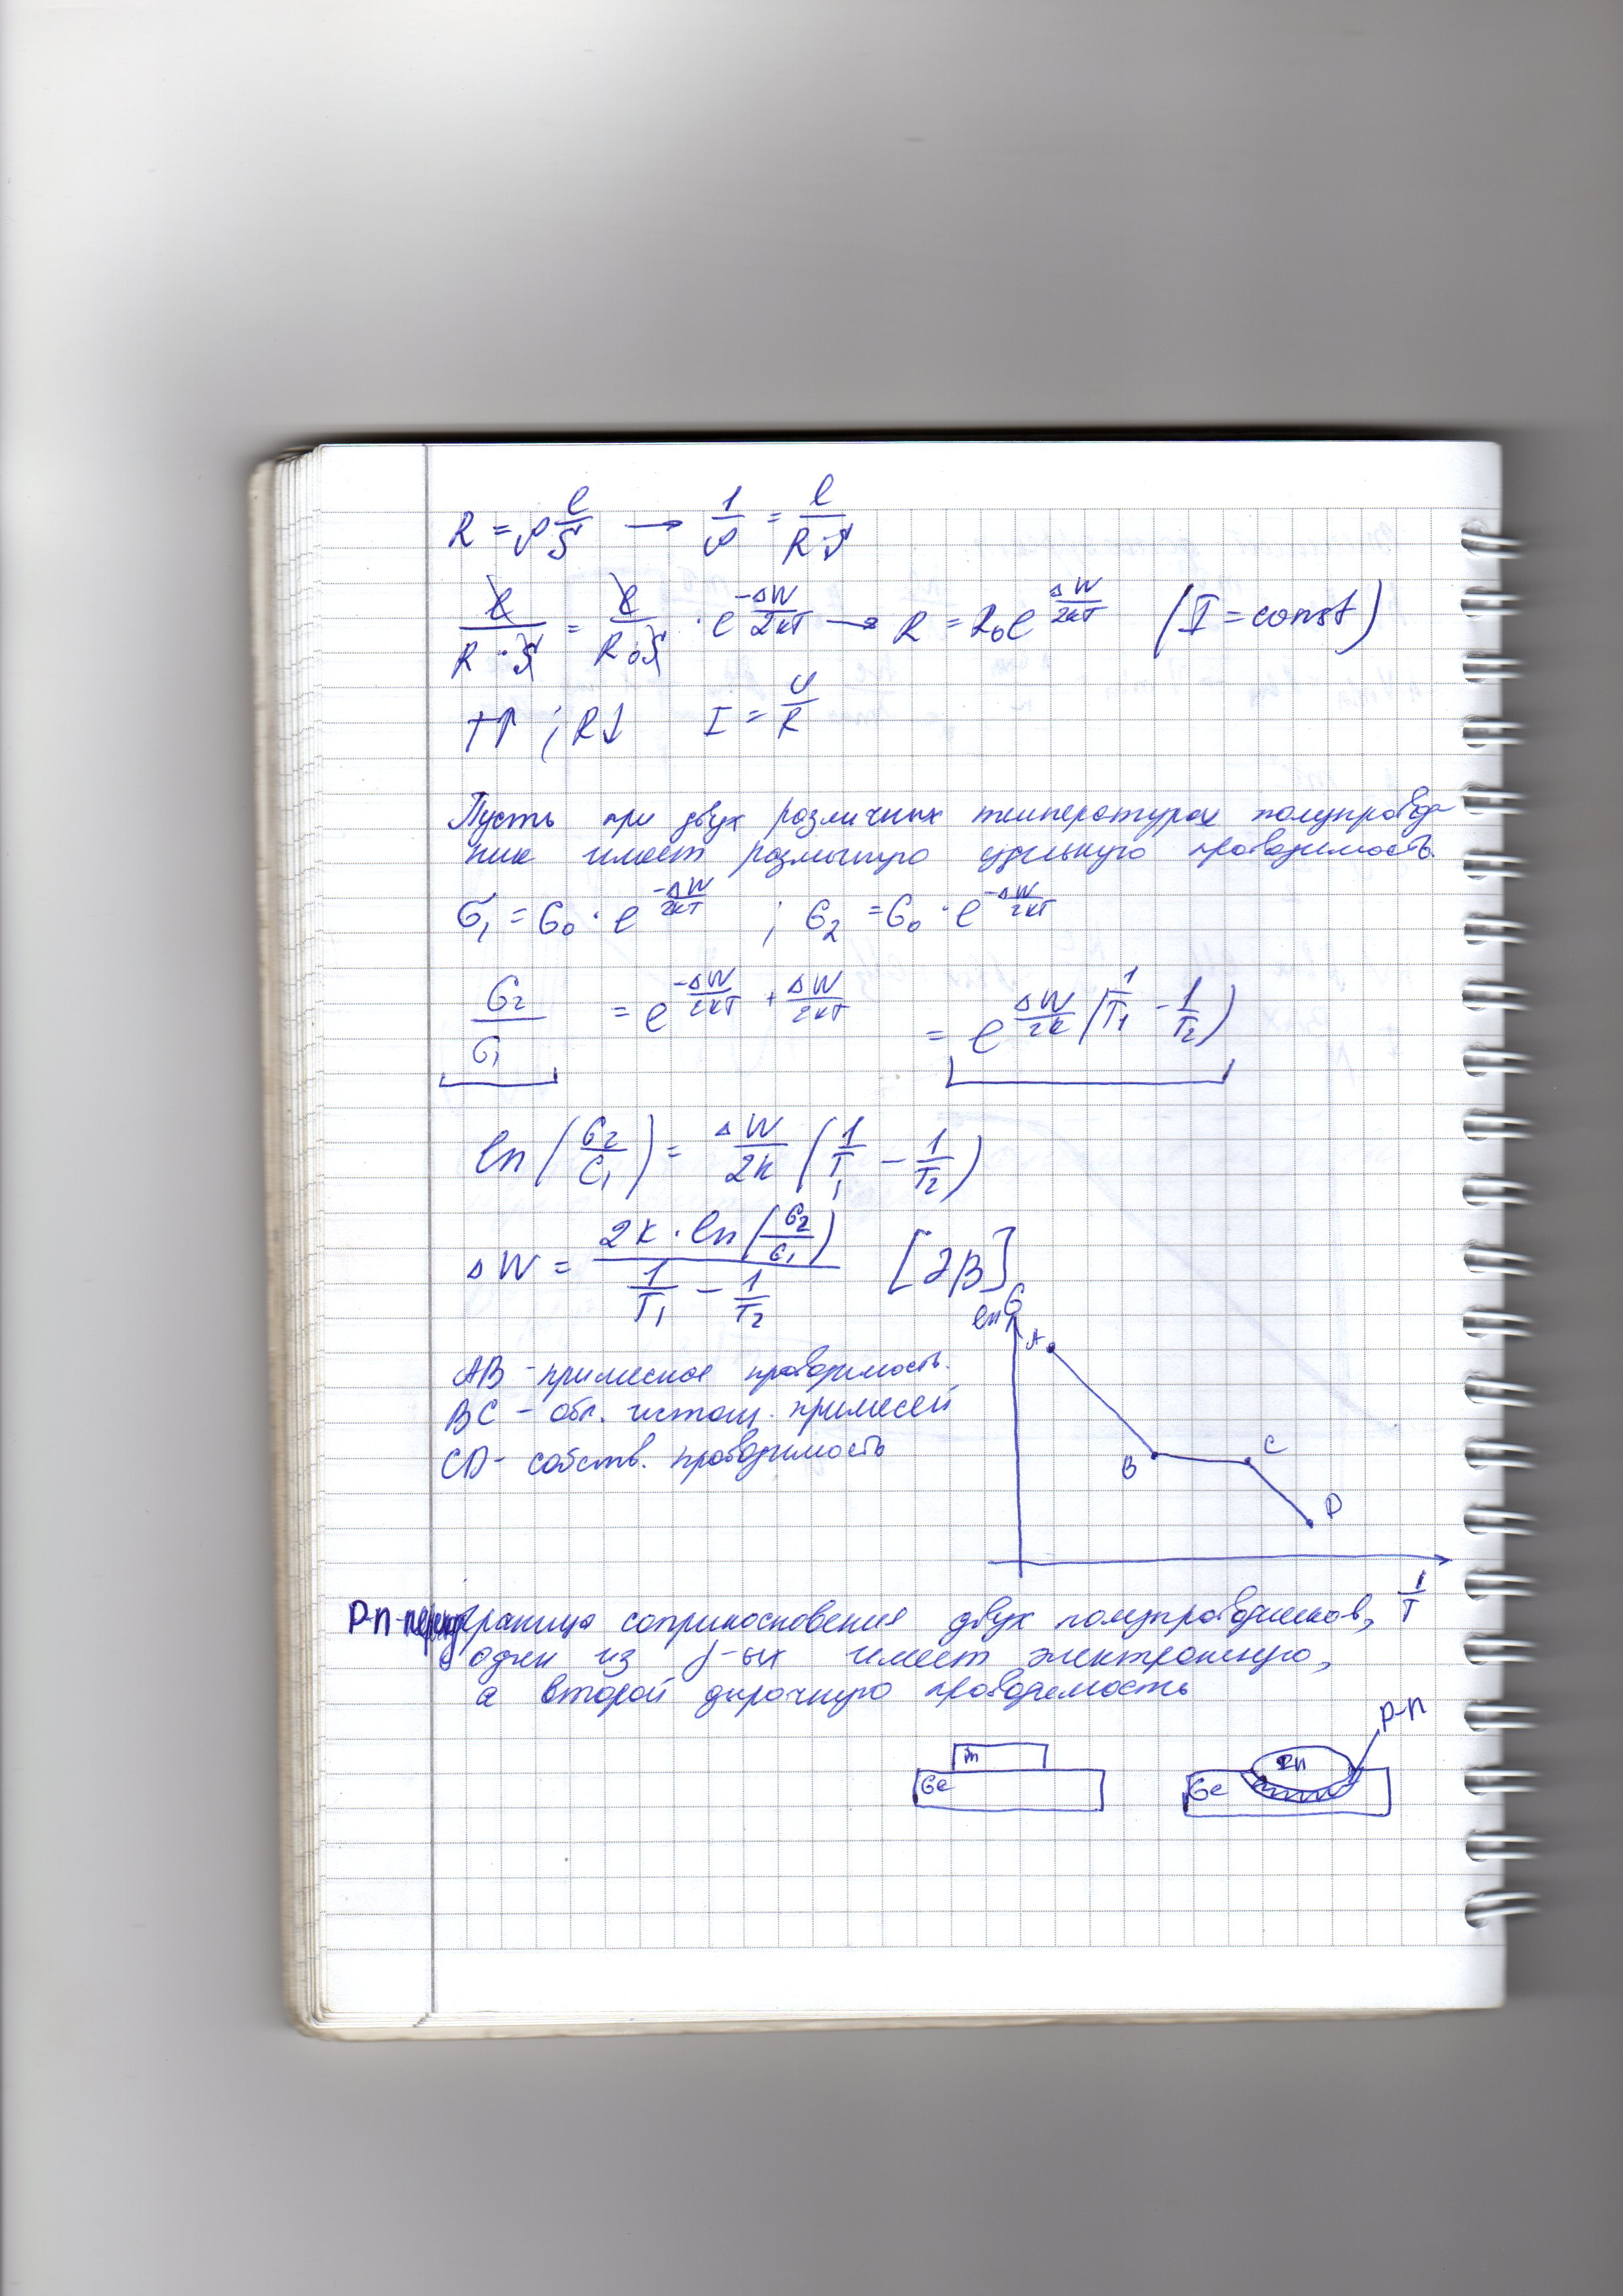 R = ρ l/S → 1/ρ = l/(R·S)
l/(R·S) = l/(R₀S) · e^(-ΔW/2kT) → R = R₀e^(ΔW/2kT) (I = const)
T↑ ; R↓ I = U/R
Пусть при двух различных температурах полупровод-
ник имеет различную удельную проводимость.
σ₁ = σ₀ · e^(-ΔW/2kT) ; σ₂ = σ₀ · e^(-ΔW/2kT)
σ₂/σ₁ = e^(-ΔW/2kT + ΔW/2kT) = e^(ΔW/2k (1/T₁ - 1/T₂))
ln(σ₂/σ₁) = ΔW/2k (1/T₁ - 1/T₂)
ΔW = (2k · ln(σ₂/σ₁))/(1/T₁ - 1/T₂) [эВ]
ln σ
A
B
C
D
1/T
AB - примесная проводимость.
BC - обл. истощ. примесей
CD - собств. проводимость
P-n-переход граница соприкосновения двух полупроводников,
один из д-ых имеет электронную,
а второй дырочную проводимость
p-n
In
Ge
In
Ge